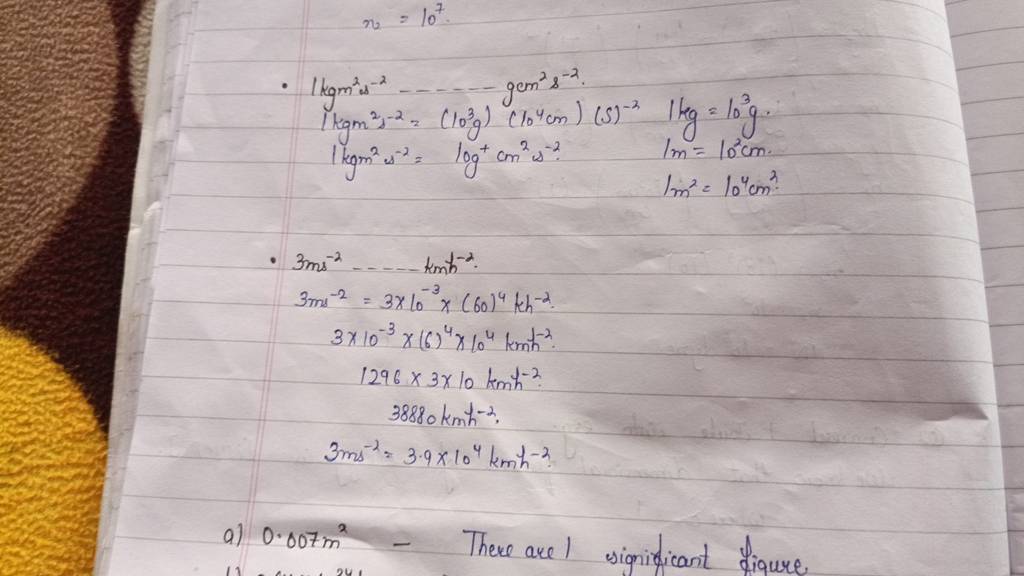 n₂ = 10⁷.
• 1kgm²s⁻² ------- gcm²s⁻².
1kgm²s⁻² = (10³g) (10⁴cm) (s)⁻² 1kg = 10³g.
1kgm²s⁻² = 10g⁺ cm²s⁻². 1m = 10²cm.
1m² = 10⁴cm².
• 3ms⁻² ------ kmh⁻².
3ms⁻² = 3×10⁻³ × (60)⁴ kh⁻².
3×10⁻³ × (6)⁴ × 10⁴ kmh⁻².
1296 × 3 × 10 kmh⁻².
38880 kmh⁻².
3ms⁻² = 3.9 × 10⁴ kmh⁻².
a) 0.007m² - There are 1 significant figure